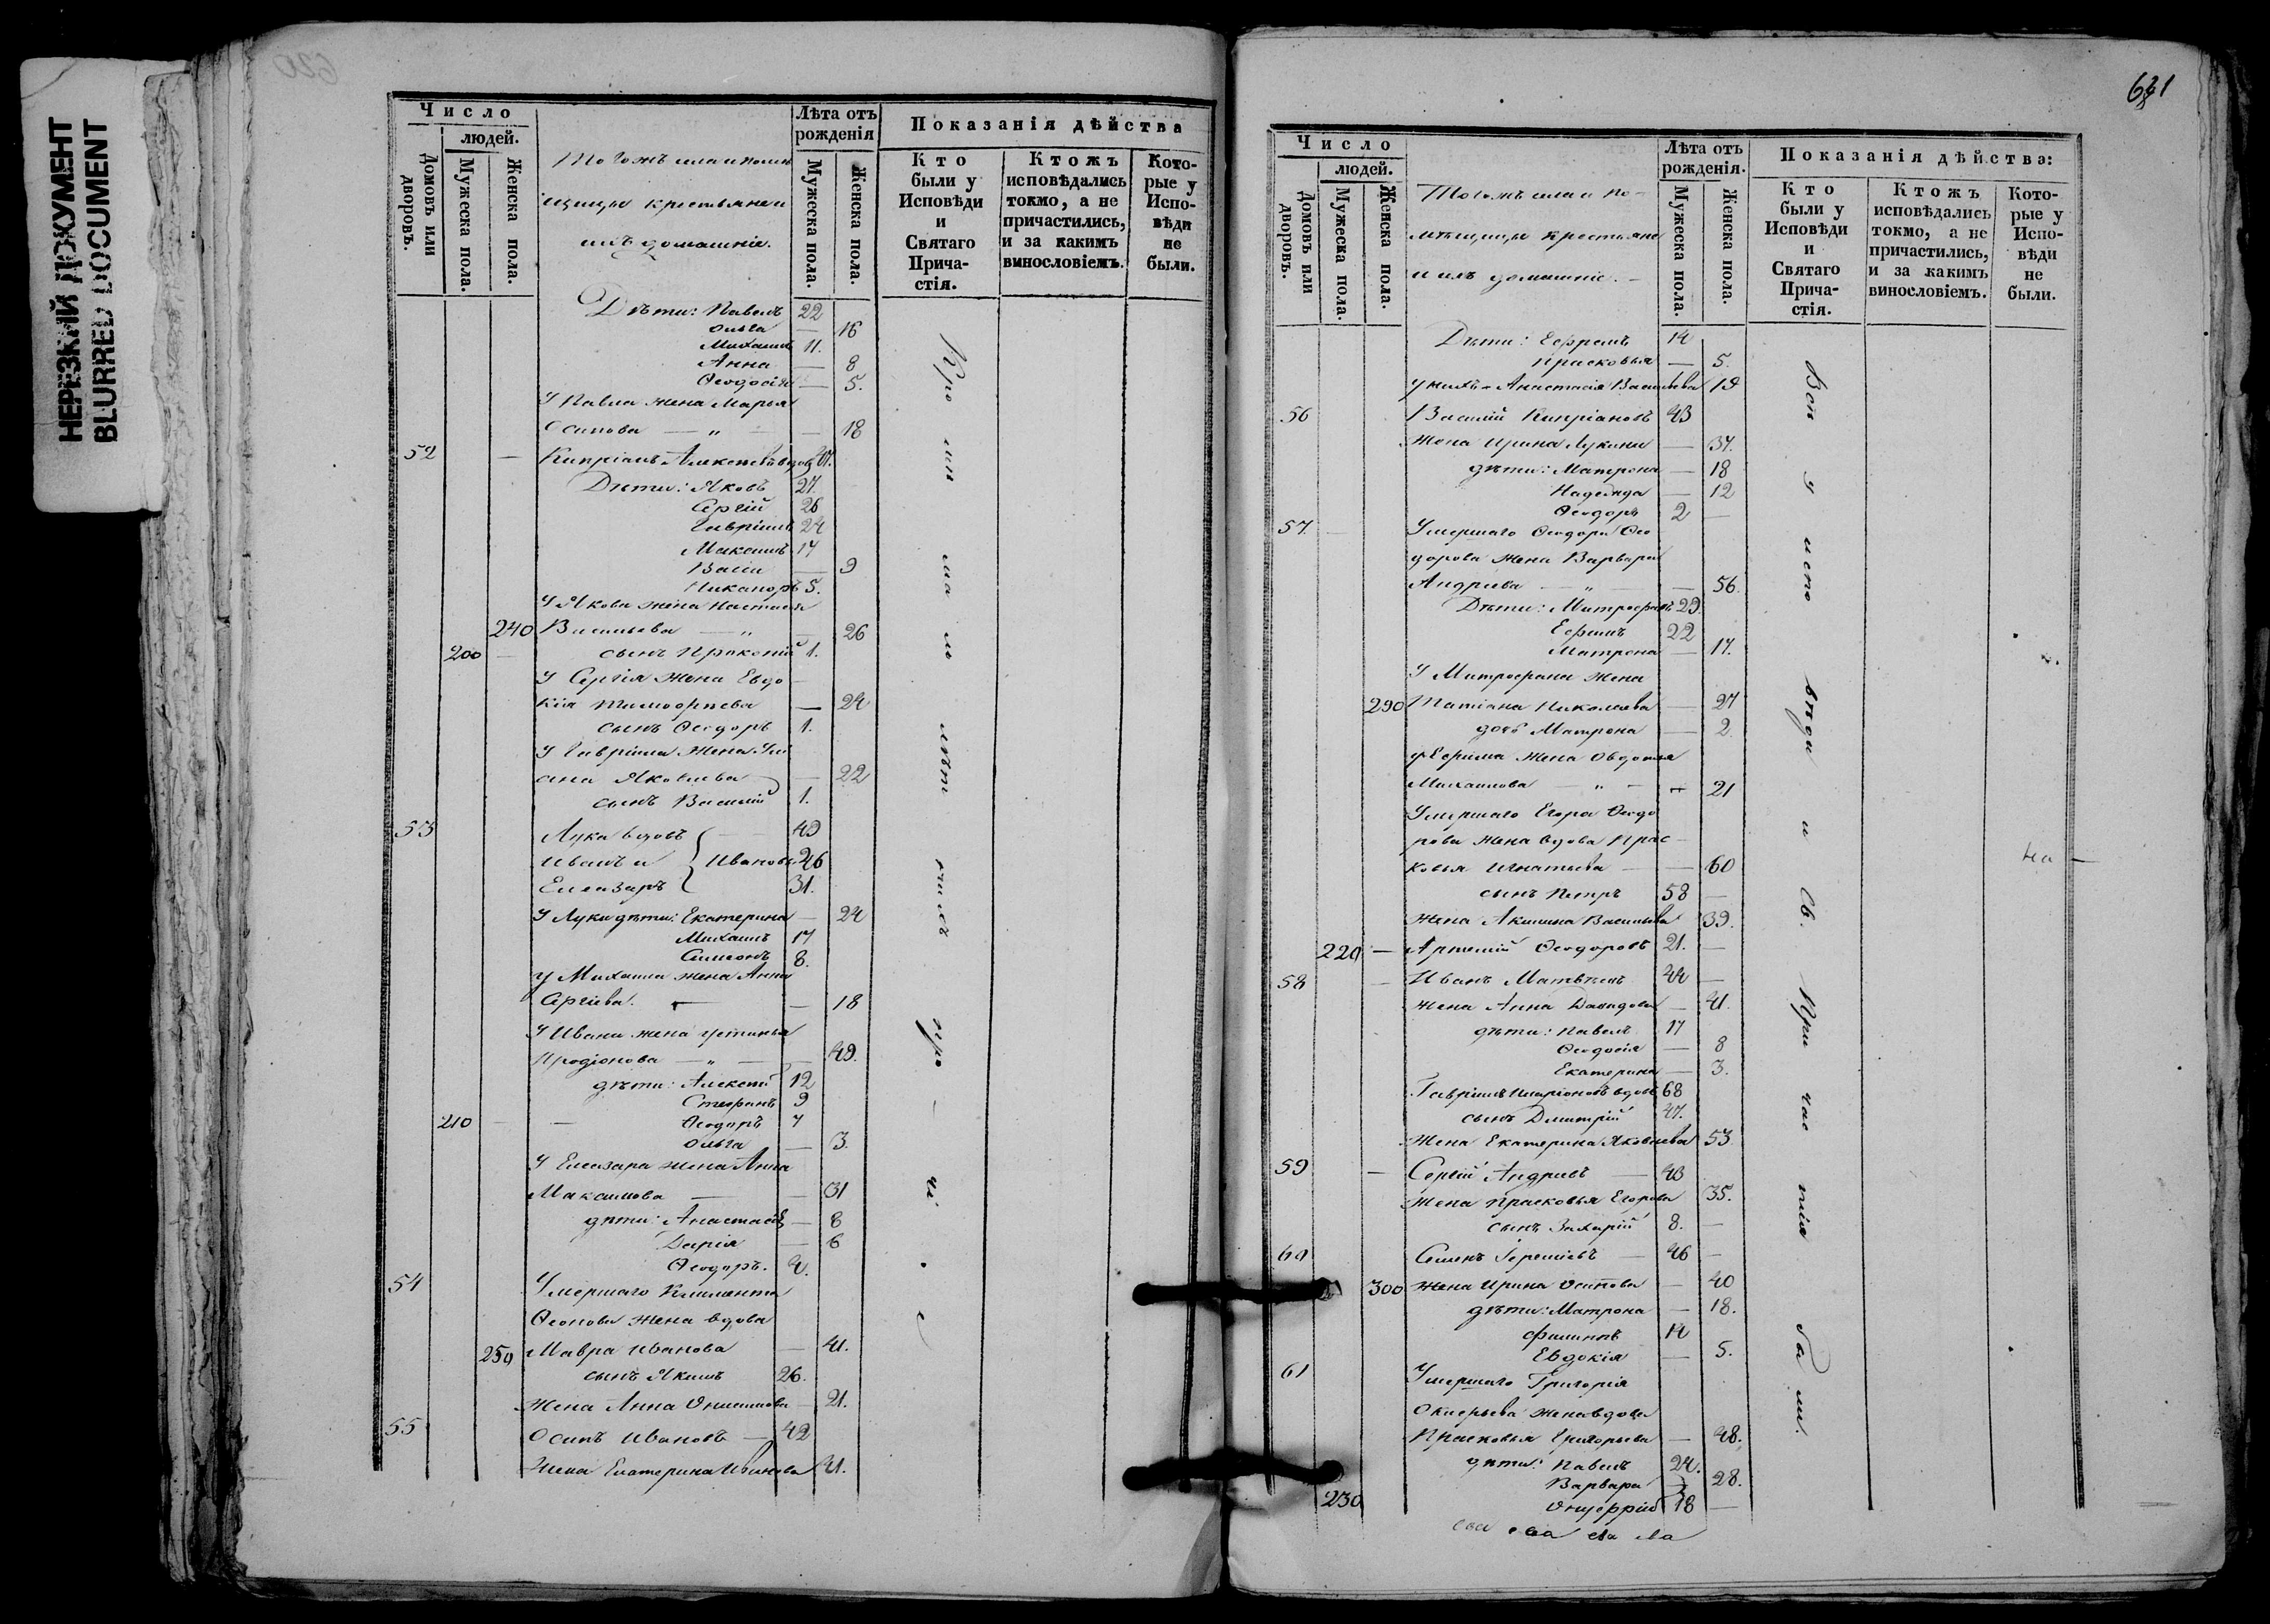 НЕРЕЗКИЙ ДОКУМЕНТ
BLURRED DOCUMENT
620
Число
людей.
Домовъ или дворовъ.
Мужеска пола.
Женска пола.
Тогожъ села помѣ
щицы крестьяне и
ихъ домашніе.
Лѣта отъ рожденія
Мужеска пола.
Женска пола.
Показанія дѣйства
Кто были у Исповѣди и Святаго Причастія.
Ктожъ исповѣдались токмо, а не причастились, и за какимъ винословіемъ.
Которые у Исповѣди не были.
Дѣти: Павелъ 22
Ольга — 16
Михаилъ 11.
Анна — 8
Ѳеодосія — 5.
У Павла жена Марья
Осипова — „ — 18
52 — Кипріанъ Алексѣевъ вдовъ 47.
Дѣти: Яковъ 27
Сергій 26
Гавріилъ 24
Максимъ 17
Васса — 9
Никаноръ 5.
У Якова жена Настасья
240 Васильева — „ — 26
200 — сынъ Прокопій 1.
У Сергія жена Евдо
кія Тимофѣева — 24
сынъ Ѳеодоръ 1.
У Гавріила жена Улі
ана Яковлева — 22
сынъ Василій 1.
53 Лука вдовъ — 49
Иванъ и Ивановы 46
Елеазаръ 31.
У Луки дѣти: Екатерина — 24
Михаилъ 17
Симеонъ 8.
У Михаила жена Анна
Сергіева. — 18
У Ивана жена Устинья
Иродіонова — „ — 49.
дѣти: Алексѣй 12
Стефанъ 9
210 — — Ѳеодоръ 7
Ольга — 3.
У Елеазара жена Анна
Максимова — 31
дѣти: Анастасія — 8
Дарія — 6
Ѳеодоръ. 4.
54 Умершаго Климента
Ѳеонова жена вдова
250 Мавра Иванова — 41.
сынъ Якимъ 26.
Жена Анна Онисимова — 21.
55 Осипъ Ивановъ — 42
Жена Екатерина Иванова 41.
631
Число
людей.
Домовъ или дворовъ.
Мужеска пола.
Женска пола.
Тогожъ села по-
мѣщицы крестьяне
и ихъ домашніе. —
Лѣта отъ рожденія.
Мужеска пола.
Женска пола.
Показанія дѣйства:
Кто были у Исповѣди и Святаго Причастія.
Ктожъ исповѣдались токмо, а не причастились, и за какимъ винословіемъ.
Которые у Исповѣди не были.
Дѣти: Ефремъ 14
Прасковья — 5.
У нихъ Анастасія Васильева 19
56 Василій Кипріановъ 43
Жена Ирина Лукина — 37.
дѣти: Матрона — 18
Надежда — 12
Ѳеодоръ 2 —
57. — Умершаго Ѳеодора Ѳео
дорова жена Варвара
Андріева — „ — 56.
Дѣти: Митрофанъ 29.
Ефимъ 22
Матрона — 17.
У Митрофана жена
290 Татіана Николаева — 27
дочь Матрона — 2
У Ефима жена Овдотья
Михаилова — „ — 21
Умершаго Егора Ѳеодо
рова жена вдова Прас-
ковья Игнатьева — 60
сынъ Петръ 58 —
Жена Акилина Васильева 39.
220 — Артемій Ѳеодоровъ 21. —
58 — Иванъ Матвѣевъ 44 —
Жена Анна Давидова — 41.
дѣти: Павелъ 17
Ѳеодосія — 8
Екатерина — 3.
Гавріилъ Иларіоновъ вдовъ 68
сынъ Дмитрій 47.
Жена Екатерина Яковлева 53.
59 — Сергій Андріевъ — 43
Жена Прасковья Егорова 35.
сынъ Захарій 8. —
60 Семенъ Іереміевъ — 46 —
300 Жена Ирина Осипова — 40
дѣти: Матрона — 18.
Филиппъ 14
Евдокія — 5.
61 Умершаго Григорія
жена вдова
Прасковья Григорьева — 48.
дѣти: Павелъ 24.
Варвара — 28.
230 Онуфрій 18 —
Вси у исповѣди и Св. Причастія были.